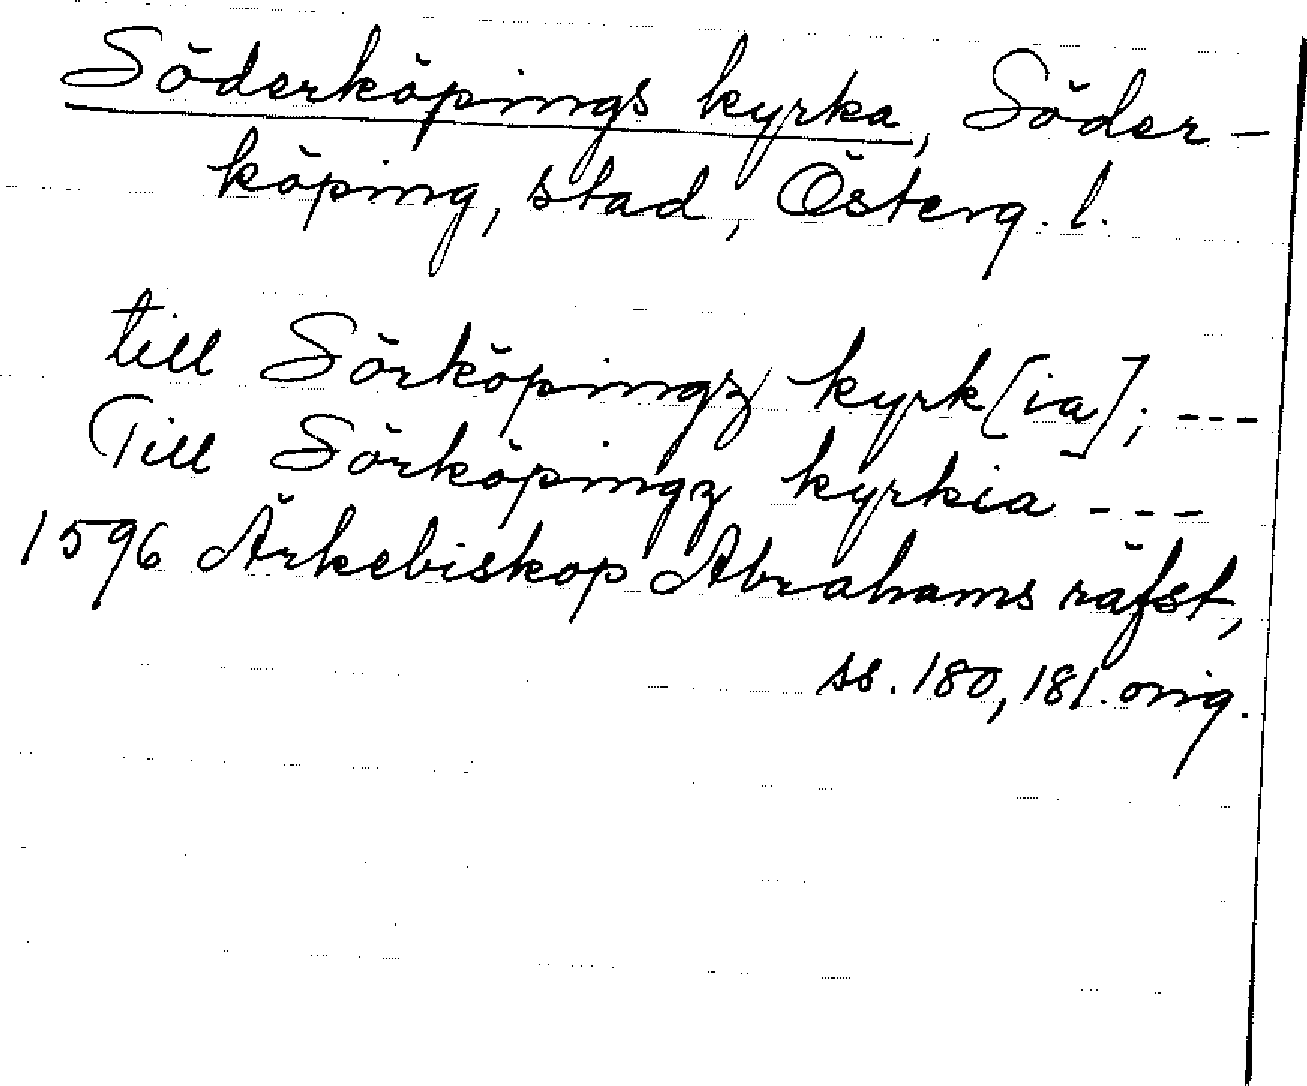 Söderköpings kyrka, Söder-
köping, stad, Österg. l.
till Sörköpingz kyrk[ia]; ---
Till Sörköpingz kyrkia ---
1596 Ärkebiskop Abrahams räfst,
ss. 180, 181. orig.